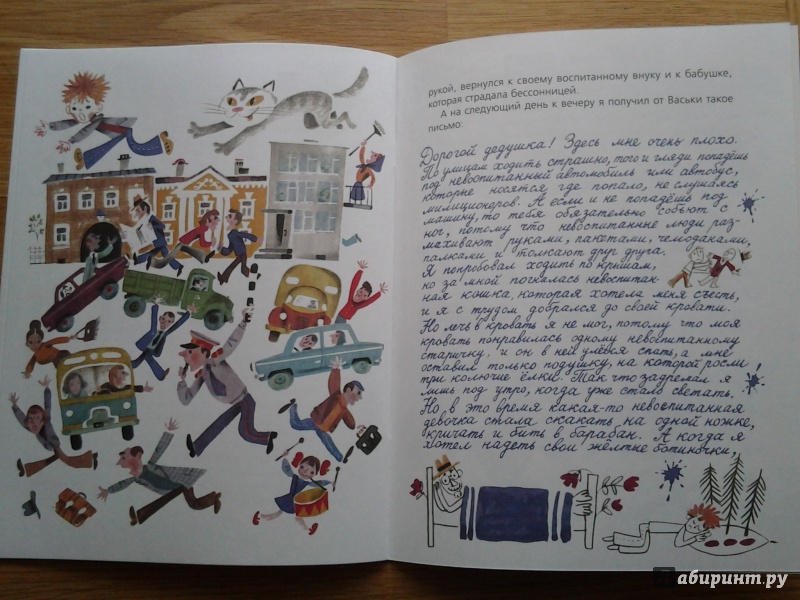 рукой, вернулся к своему воспитанному внуку и к бабушке,
которая страдала бессонницей.
А на следующий день к вечеру я получил от Васьки такое
письмо:
Дорогой дедушка! Здесь мне очень плохо.
По улицам ходить страшно, того и гляди попадёшь
под невоспитанный автомобиль или автобус,
которые носятся где попало, не слушаясь
милиционеров. А если и не попадёшь под
машину, то тебя обязательно собьют с
ног, потому что невоспитанные люди раз-
махивают руками, пакетами, чемоданами,
палками и толкают друг друга.
Я попробовал ходить по крышам,
но за мной погналась невоспитан-
ная кошка, которая хотела меня съесть,
и я с трудом добрался до своей кровати.
Но лечь в кровать я не мог, потому что моя
кровать понравилась одному невоспитанному
старичку, и он в ней улёгся спать, а мне
оставил только подушку, на которой росли
три колючие ёлки. Так что задремал я
лишь под утро, когда уже стало светать.
Но в это время какая-то невоспитанная
девочка стала скакать на одной ножке,
кричать и бить в барабан. А когда я
хотел надеть свои жёлтые ботиночки,
Лабиринт.ру